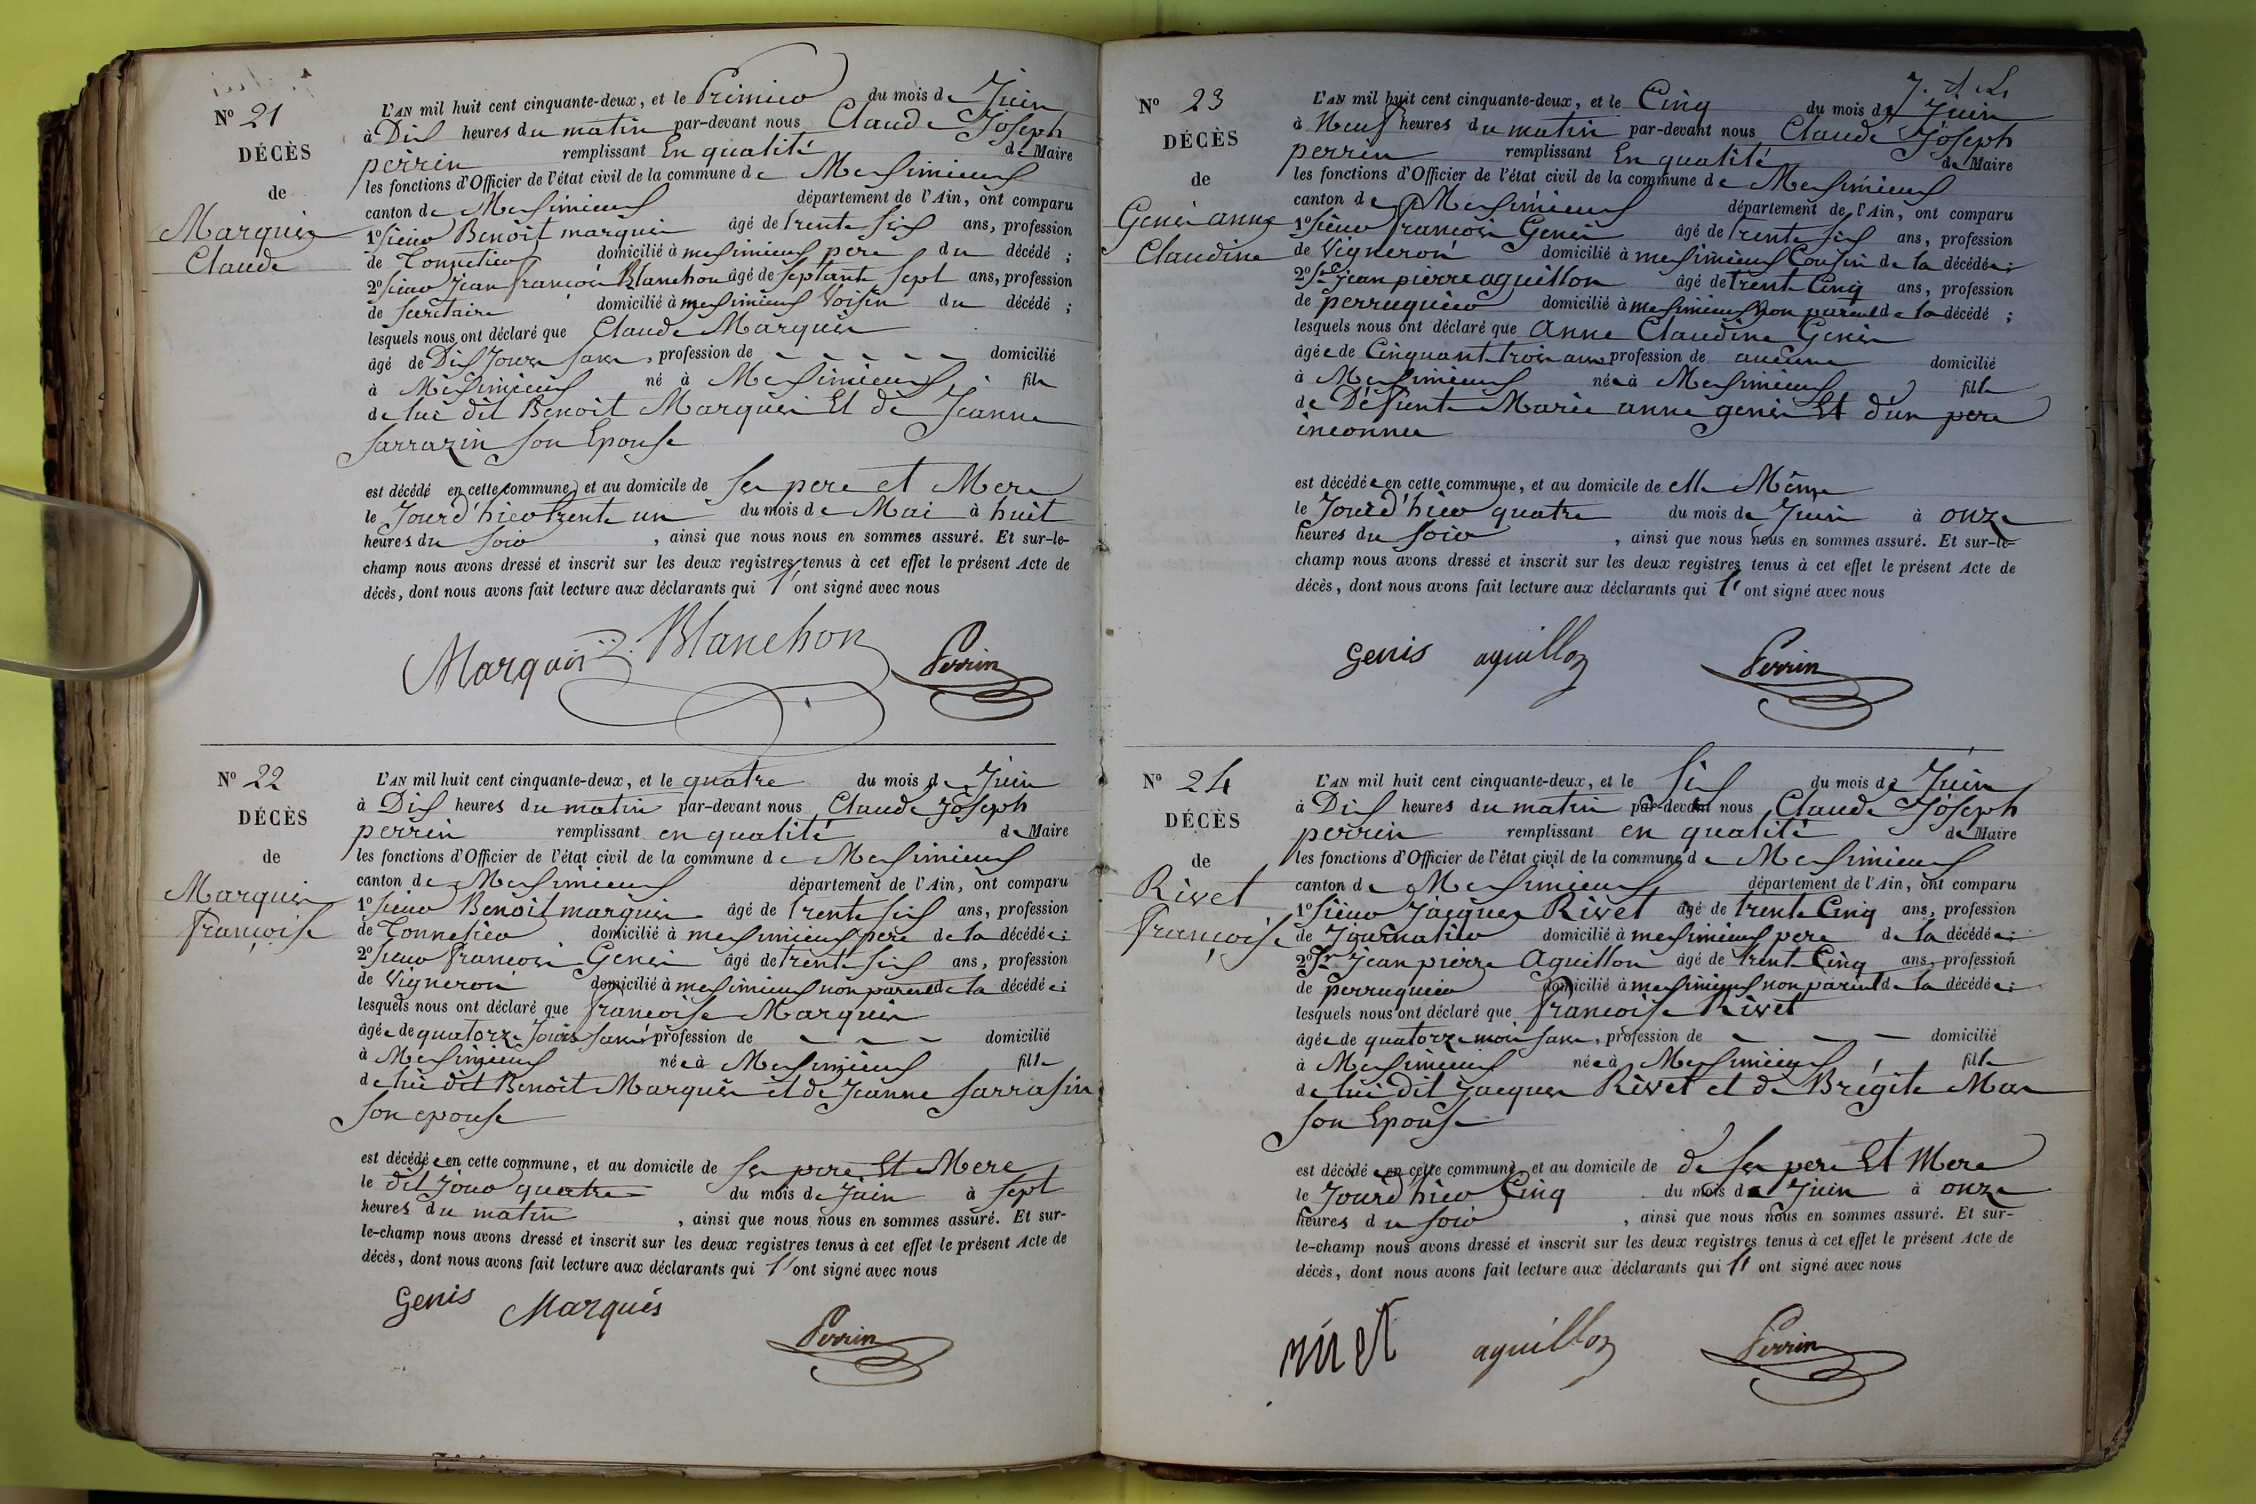 Nº 21
DÉCÈS
de
Marquis
Claude
L'AN mil huit cent cinquante-deux, et le Primier du mois de Juin
à Dix heures du matin par-devant nous Claude Joseph
perrin remplissant En qualité de Maire
les fonctions d'Officier de l'état civil de la commune de Meximieux
canton de Meximieux département de l'Ain, ont comparu
1º sieur Benoit marquis âgé de trente six ans, profession
de Tonnelier domicilié à meximieux pere du décédé ;
2º sieur Jean françois Blanchon âgé de septante sept ans, profession
de secritaire domicilié à meximieux voisin du décédé ;
lesquels nous ont déclaré que Claude Marquis
âgé de Dix Jours sans, profession de — — — — — domicilié
à Meximieux né à Meximieux, fils
de lui dit Benoit Marquis Et de Jeanne
sarrazin son Epouse
est décédé en cette commune, et au domicile de ses pere et Mere
le Jourd'hier trente un du mois de Mai à huit
heures du soir, ainsi que nous nous en sommes assuré. Et sur-le-
champ nous avons dressé et inscrit sur les deux registres tenus à cet effet le présent Acte de
décès, dont nous avons fait lecture aux déclarants qui l'ont signé avec nous
Marquis Blanchon Perrin
Nº 22
DÉCÈS
de
Marquis
françoise
L'AN mil huit cent cinquante-deux, et le quatre du mois de Juin
à Dix heures du matin par-devant nous Claude Joseph
perrin remplissant en qualité de Maire
les fonctions d'Officier de l'état civil de la commune de Meximieux
canton de Meximieux département de l'Ain, ont comparu
1º sieur Benoit marquis âgé de trente six ans, profession
de Tonnelier domicilié à meximieux pere de la décédée ;
2º sieur francois Genis âgé de trente six ans, profession
de Vigneron domicilié à meximieux non parent de la décédée ;
lesquels nous ont déclaré que francoise Marquis
âgée de quatorze Jours sans profession de — — — domicilié
à Meximieux née à Meximieux fille
de lui dit Benoit Marquis et de Jeanne sarrasin
son epouse
est décédée en cette commune, et au domicile de ses pere Et Mere
le dit Jour quatre du mois de Juin à sept
heures du matin, ainsi que nous nous en sommes assuré. Et sur-
le-champ nous avons dressé et inscrit sur les deux registres tenus à cet effet le présent Acte de
décès, dont nous avons fait lecture aux déclarants qui l'ont signé avec nous
Genis Marqués Perrin
Nº 23
DÉCÈS
de
Genis anne
Claudine
L'AN mil huit cent cinquante-deux, et le Cinq du mois de Juin
à Neuf heures du matin par-devant nous Claude Joseph
perrin remplissant En qualité de Maire
les fonctions d'Officier de l'état civil de la commune de Meximieux
canton de Meximieux département de l'Ain, ont comparu
1º sieur francois Genis âgé de trente six ans, profession
de Vigneron domicilié à meximieux Cousin de la décédée ;
2º Sr Jean pierre aguillon âgé de trente Cinq ans, profession
de perruquier domicilié à meximieux non parent de la décédé ;
lesquels nous ont déclaré que anne Claudine Genis
âgée de Cinquant trois ans profession de aucune domicilié
à Meximieux née à Meximieux, fille
de Défunte Marie anne genis Et d'un pere
inconnu
est décédée en cette commune, et au domicile de elle Même
le Jourd'hier quatre du mois de Juin à onze
heures du soir, ainsi que nous nous en sommes assuré. Et sur-le-
champ nous avons dressé et inscrit sur les deux registres tenus à cet effet le présent Acte de
décès, dont nous avons fait lecture aux déclarants qui l'ont signé avec nous
Genis aguillon Perrin
Nº 24
DÉCÈS
de
Rivet
françoise
L'AN mil huit cent cinquante-deux, et le six du mois de Juin
à Dix heures du matin par-devant nous Claude Joseph
perrin remplissant en qualité de Maire
les fonctions d'Officier de l'état civil de la commune de Meximieux
canton de Meximieux département de l'Ain, ont comparu
1º sieur Jacques Rivet âgé de trente Cinq ans, profession
de Journalier domicilié à meximieux pere de la décédée ;
2º Sr Jean pierre Aguillon âgé de trente Cinq ans, profession
de perruquier domicilié à meximieux non parent de la décédée ;
lesquels nous ont déclaré que francoise Rivet
âgée de quatorze mois sans, profession de — — — domicilié
à Meximieux née à Meximieux, fille
de lui dit Jacques Rivet et de Brégite Mas
son Epouse
est décédée en cette commune, et au domicile de de ses pere Et Mere
le Jourd'hier Cinq du mois de Juin à onze
heures du soir, ainsi que nous nous en sommes assuré. Et sur-
le-champ nous avons dressé et inscrit sur les deux registres tenus à cet effet le présent Acte de
décès, dont nous avons fait lecture aux déclarants qui l' ont signé avec nous
rivet aguillon Perrin